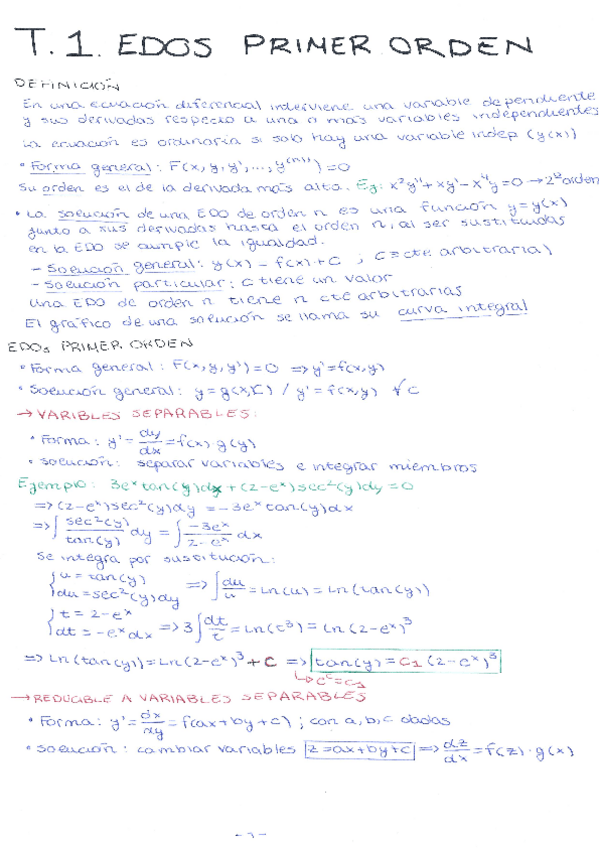 T.1. EDOS PRIMER ORDEN
DEFINICIÓN
En una ecuación diferencial interviene una variable dependiente
y sus derivadas respecto a una n más variables independientes
La ecuación es ordinaria si solo hay una variable indep (y(x))
• Forma general: F(x,y,y',...,y⁽ⁿ⁾)=0
Su orden es el de la derivada más alta. Eg: x²y''+xy'-x⁴y=0 → 2º orden
• La solución de una EDO de orden n es una función y=y(x)
junto a sus derivadas hasta el orden n, al ser sustituidas
en la EDO se cumple la igualdad.
- Solución general: y(x) = f(x)+C , C≡cte arbitraria)
- Solución particular: C tiene un valor
Una EDO de orden n tiene n cte arbitrarias
El gráfico de una solución se llama su curva integral
EDOs PRIMER ORDEN
• Forma general: F(x,y,y')=0 ⇒ y'=f(x,y)
• Solución general: y=g(x,C) / y'=f(x,y) ∀C
→ VARIABLES SEPARABLES:
• Forma: y'=dy/dx=f(x)·g(y)
• Solución: separar variables e integrar miembros
Ejemplo: 3eˣtan(y)dx+(2-eˣ)sec²(y)dy=0
⇒(2-eˣ)sec²(y)dy=-3eˣtan(y)dx
⇒∫sec²(y)/tan(y) dy=∫-3eˣ/2-eˣ dx
Se integra por sustitución:
{u=tan(y) du=sec²(y)dy ⇒∫du/u=Ln(u)=Ln(tan(y))
{t=2-eˣ dt=-eˣdx ⇒3∫dt/t=Ln(t³)=Ln(2-eˣ)³
⇒Ln(tan(y))=Ln(2-eˣ)³+C ⇒ tan(y)=C₁(2-eˣ)³
↳eᶜ=C₁
→REDUCIBLE A VARIABLES SEPARABLES
• Forma: y'=dx/dy=f(ax+by+c) ; con a,b,c dadas
• Solución: cambiar variables z=ax+by+c ⇒dz/dx=f(z)·g(x)
-1-